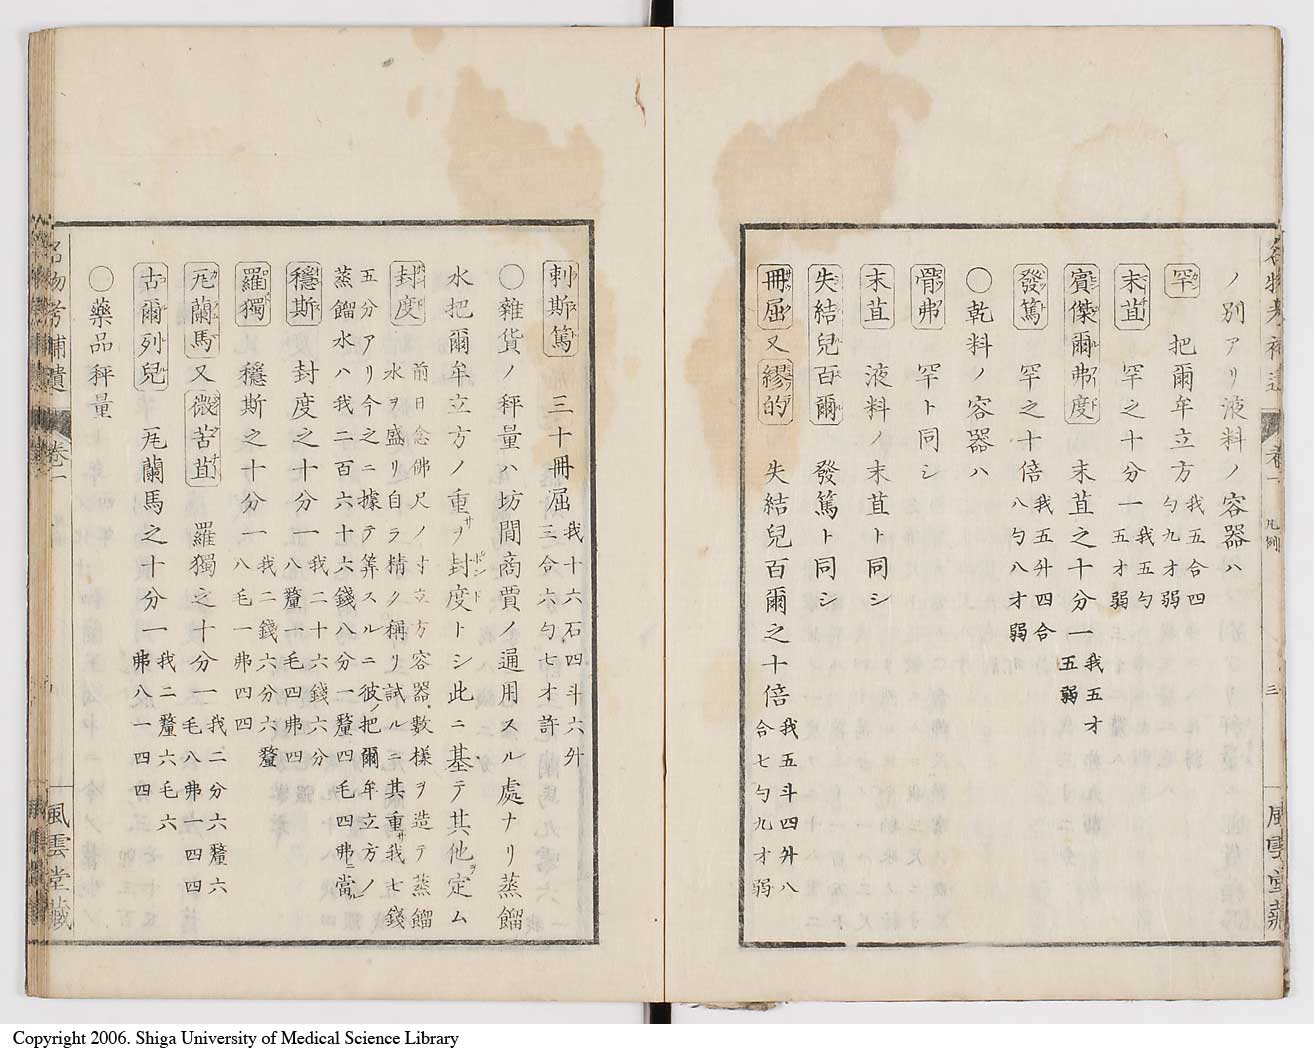 ノ別アリ液料ノ容器ハ
罕 把爾牟立方 我五合四勺九才弱
末苴 罕之十分一 我五勺五才弱
賓傑爾弗度 末苴之十分一 我五才五弱
發篤 罕之十倍 我五升四合八勺八才弱
〇乾料ノ容器ハ
骨弗 罕ト同シ
末苴 液料ノ末苴ト同シ
失結兒百爾 發篤ト同シ
冊屈又繆的 失結兒百爾之十倍 我五斗四升八合七勺九才弱
名物考補遺 卷一 凡例 三 風雲堂藏
刺斯篤 三十冊屈 我十六石四斗六升三合六勺七才許
〇雜貨ノ秤量ハ坊間商賈ノ通用スル處ナリ蒸餾
水把爾牟立方ノ重サヲ封度ポンドトシ此ニ基テ其他ヲ定ム
封度 前日念佛尺ノ寸立方容器數樣ヲ造テ蒸餾水ヲ盛リ自ラ精ク稱リ試ルニ其重サ我七錢
五分アリ今之ニ據テ筭スルニ彼ノ把爾牟立方ノ蒸餾水ハ我二百六十六錢八分一釐四毛四弗ニ當ル
穩斯 封度之十分一 我二十六錢六分八釐一毛四弗四
羅獨 穩斯之十分一 我二錢六分六釐八毛一弗四四
尾蘭馬又微苦苴 羅獨之十分一 我二分六釐六毛八弗一四四
古爾列兒 尾蘭馬之十分一 我二釐六毛六弗八一四四
〇藥品秤量
名物考補遺 卷一 風雲堂藏
Copyright 2006. Shiga University of Medical Science Library